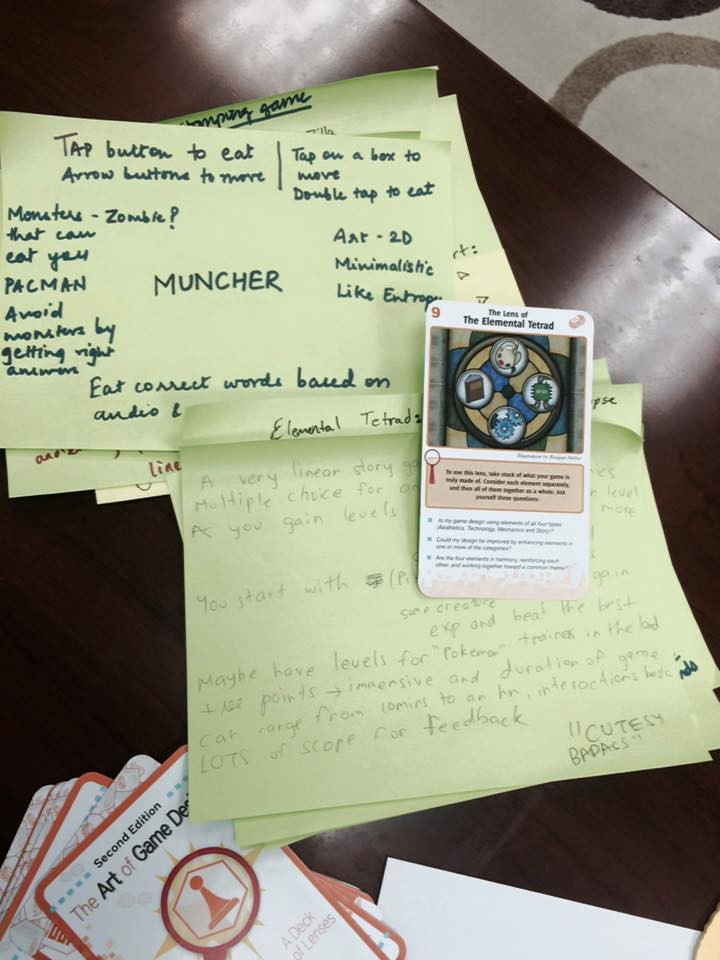 omping game
TAP button to eat
Arrow buttons to move
Tap on a box to
move
Double tap to eat
Monsters - Zombie?
that can
eat you
PACMAN
Avoid
monsters by
getting right
answers
MUNCHER
Art - 2D
Minimalistic
Like Entropy
Eat correct words based on
audio &
line
Elemental Tetrad:
A very linear story ga
Multiple choice for an
level
As you gain levels
more
You start with (Pi
gain
some creature
exp and beat the best
Maybe have levels for "Pokemon" trainers in the land
points → immersive and duration of game
can range from 10mins to an hr, interactions basic
LOTS of scope for feedback
"CUTESY
BADASS"
9
The Lens of
The Elemental Tetrad
Illustration by Reagan Heller
To use this lens, take stock of what your game is
truly made of. Consider each element separately,
and then all of them together as a whole. Ask
yourself these questions:
Is my game design using elements of all four types
(Aesthetics, Technology, Mechanics and Story)?
Could my design be improved by enhancing elements in
one or more of the categories?
Are the four elements in harmony, reinforcing each
other, and working together toward a common theme?
Second Edition
The Art of Game Desi
A Deck
of Lenses